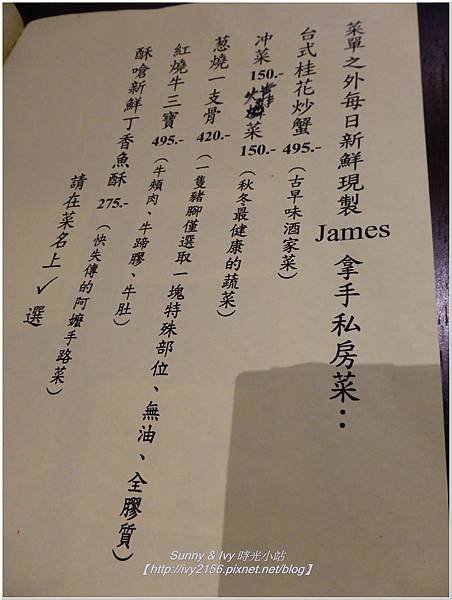 菜單之外每日新鮮現製 James 拿手私房菜：
台式桂花炒蟹 495.-（古早味酒家菜）
冲菜 150.- 菜 150.-（秋冬最健康的蔬菜）
蔥燒一支骨 420.-（一隻豬腳僅選取一塊特殊部位、無油、全膠質）
紅燒牛三寶 495.-（牛頰肉、牛蹄膠、牛肚）
酥嗆新鮮丁香魚酥 275.-（快失傳的阿嬤手路菜）
請在菜名上✓選
Sunny & Ivy 時光小站
【http://ivy2156.pixnet.net/blog】